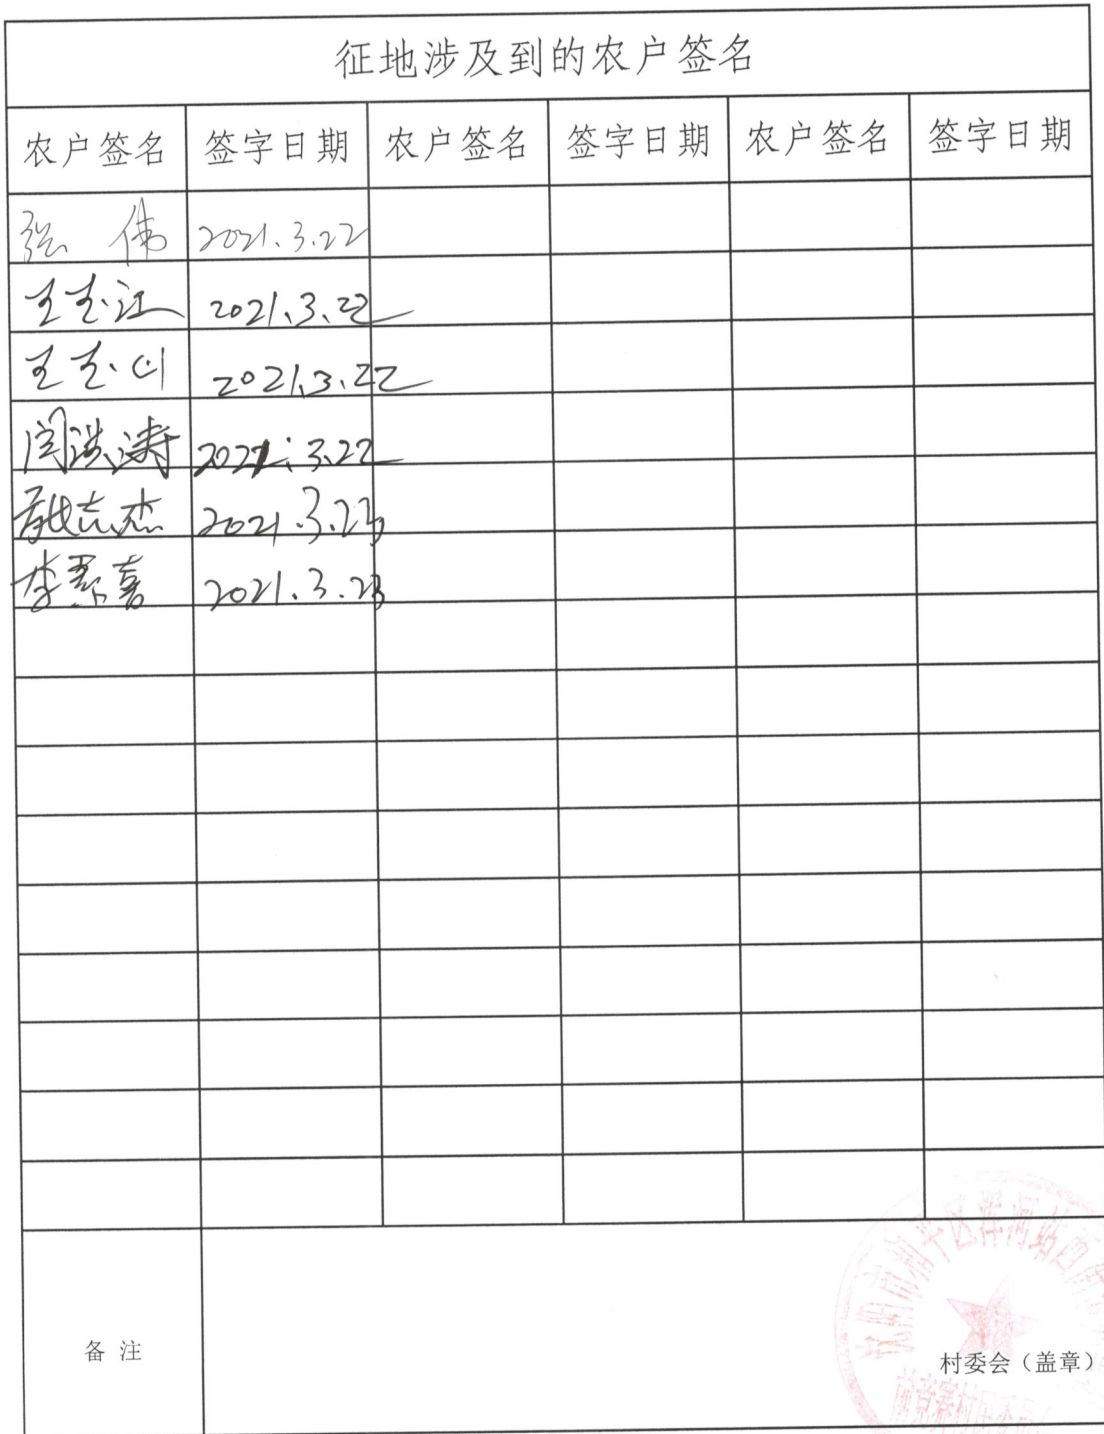 征地涉及到的农户签名
农户签名 签字日期 农户签名 签字日期 农户签名 签字日期
张伟 2021.3.22
王志江 2021.3.22
王志山 2021.3.22
闫洪涛 2021.3.22
志杰 2021.3.23
李喜 2021.3.23
沈阳市和平区浑河站西街
备 注
村委会（盖章）